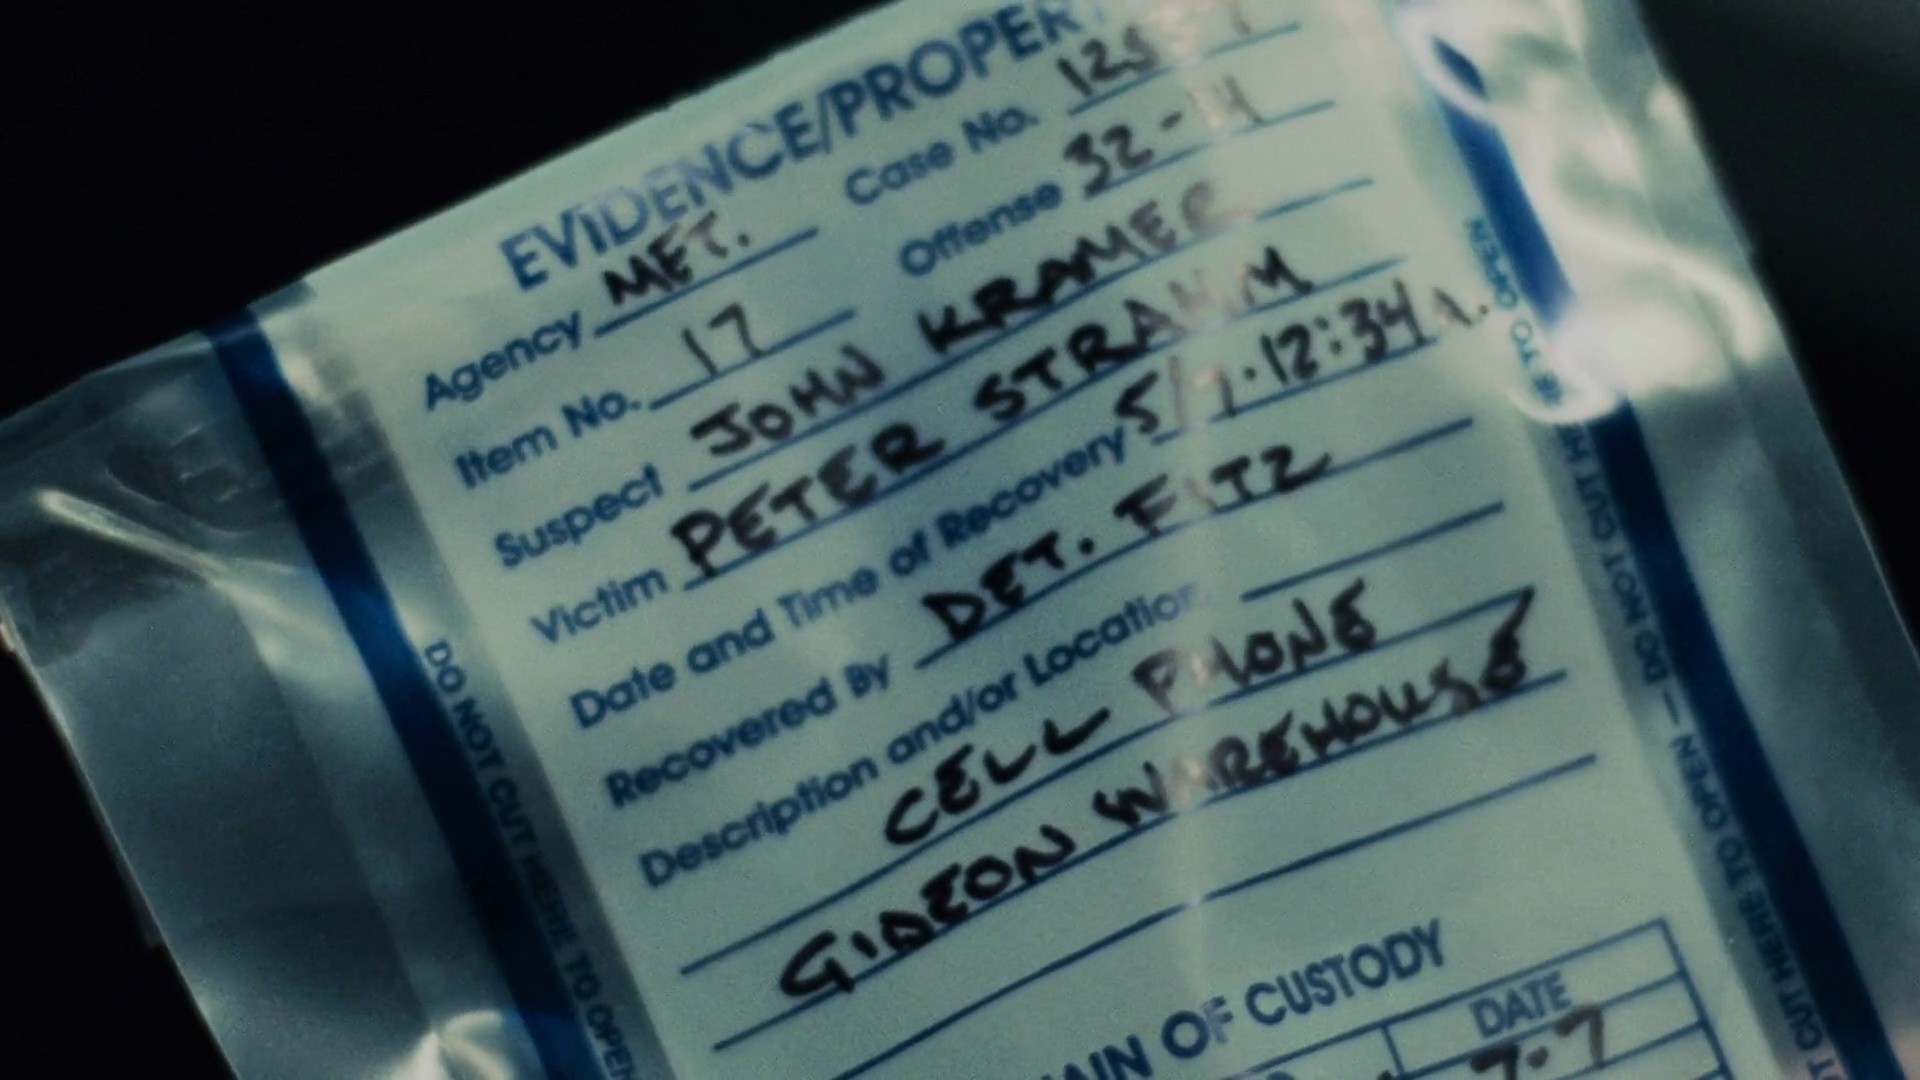 EVIDENCE/PROPERT
Agency MET. Case No.
Item No. 17 Offense 32-14
Suspect JOHN KRAMER
Victim PETER STRAHM
Date and Time of Recovery 12:34
Recovered By DET. FITZ
Description and/or Location
CELL PHONE
GIDEON WAREHOUSE
AIN OF CUSTODY
DATE
7-7
DO NOT CUT HERE TO OPEN
RE TO OPEN
DO NOT CUT HERE TO OPEN — DO NOT CUT H